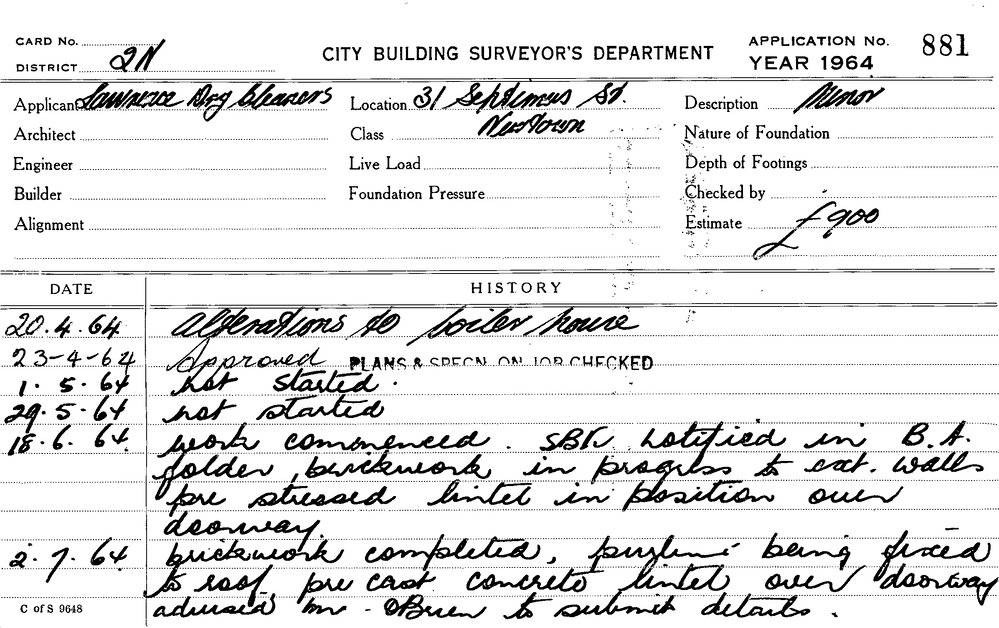 CARD No.
DISTRICT 2N
CITY BUILDING SURVEYOR'S DEPARTMENT
APPLICATION No. 881
YEAR 1964
Applicant Lawrence Dry Cleaners
Location 31 Septimus St.
Newtown
Description Minor
Architect
Class
Nature of Foundation
Engineer
Live Load
Depth of Footings
Builder
Foundation Pressure
Checked by
Alignment
Estimate £900
DATE
HISTORY
20.4.64 Alterations to boiler house
23-4-64 Approved PLANS & SPECN. ON JOB CHECKED
1.5.64 not started.
29.5.64 not started
18.6.64 work commenced. notified in B.A.
folder, brickwork in progress to ext. walls
pre stressed lintel in position over
doorway.
2.7.64 brickwork completed, purlins being fixed
to roof, pre cast concrete lintel over doorway
advised Mr O'Brien to submit details.
C of S 9648